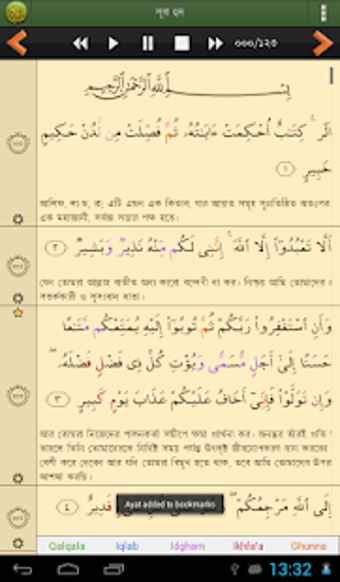 সূরা হুদ
০০০/১২৩
بِسْمِ اللَّهِ الرَّحْمَٰنِ الرَّحِيمِ
الٓر ۚ كِتَٰبٌ أُحْكِمَتْ ءَايَٰتُهُۥ ثُمَّ فُصِّلَتْ مِن لَّدُنْ حَكِيمٍ
خَبِيرٍ ١
আলিফ, লা-ম, রা; এটি এমন এক কিতাব, যার আয়াত সমূহ সুপ্রতিষ্ঠিত অতঃপর
এক মহাজ্ঞানী, সর্বজ্ঞ সত্তার পক্ষ হতে।
أَلَّا تَعْبُدُوٓا۟ إِلَّا ٱللَّهَ ۚ إِنَّنِى لَكُم مِّنْهُ نَذِيرٌ وَبَشِيرٌ ٢
যেন তোমরা আল্লাহ ব্যতীত অন্য কারো বন্দেগী না কর। নিশ্চয় আমি তোমাদের
সতর্ককারী ও সুসংবাদ দাতা।
وَأَنِ ٱسْتَغْفِرُوا۟ رَبَّكُمْ ثُمَّ تُوبُوٓا۟ إِلَيْهِ يُمَتِّعْكُم مَّتَٰعًا
حَسَنًا إِلَىٰٓ أَجَلٍ مُّسَمًّى وَيُؤْتِ كُلَّ ذِى فَضْلٍ فَضْلَهُۥ ۖ
وَإِن تَوَلَّوْا۟ فَإِنِّىٓ أَخَافُ عَلَيْكُمْ عَذَابَ يَوْمٍ كَبِيرٍ ٣
আর তোমরা নিজেদের পালনকর্তা সমীপে ক্ষমা প্রার্থনা কর। অনন্তর তাঁরই প্রতি
তাহলে তিনি তোমাদেরকে নির্দিষ্ট সময় পর্যন্ত উৎকৃষ্ট জীবনোপকরণ দান করবেন
বেশী করে দেবেন আর যদি তোমরা বিমুখ হতে থাক, তবে আমি তোমাদের উপর
আশঙ্কা করছি।
إِلَى ٱللَّهِ مَرْجِعُكُمْ ۖ قَدِيرٌ ٤
Ayat added to bookmarks
Qalqala Iqlab Idgham Ikhfa'a Ghunna
13:32